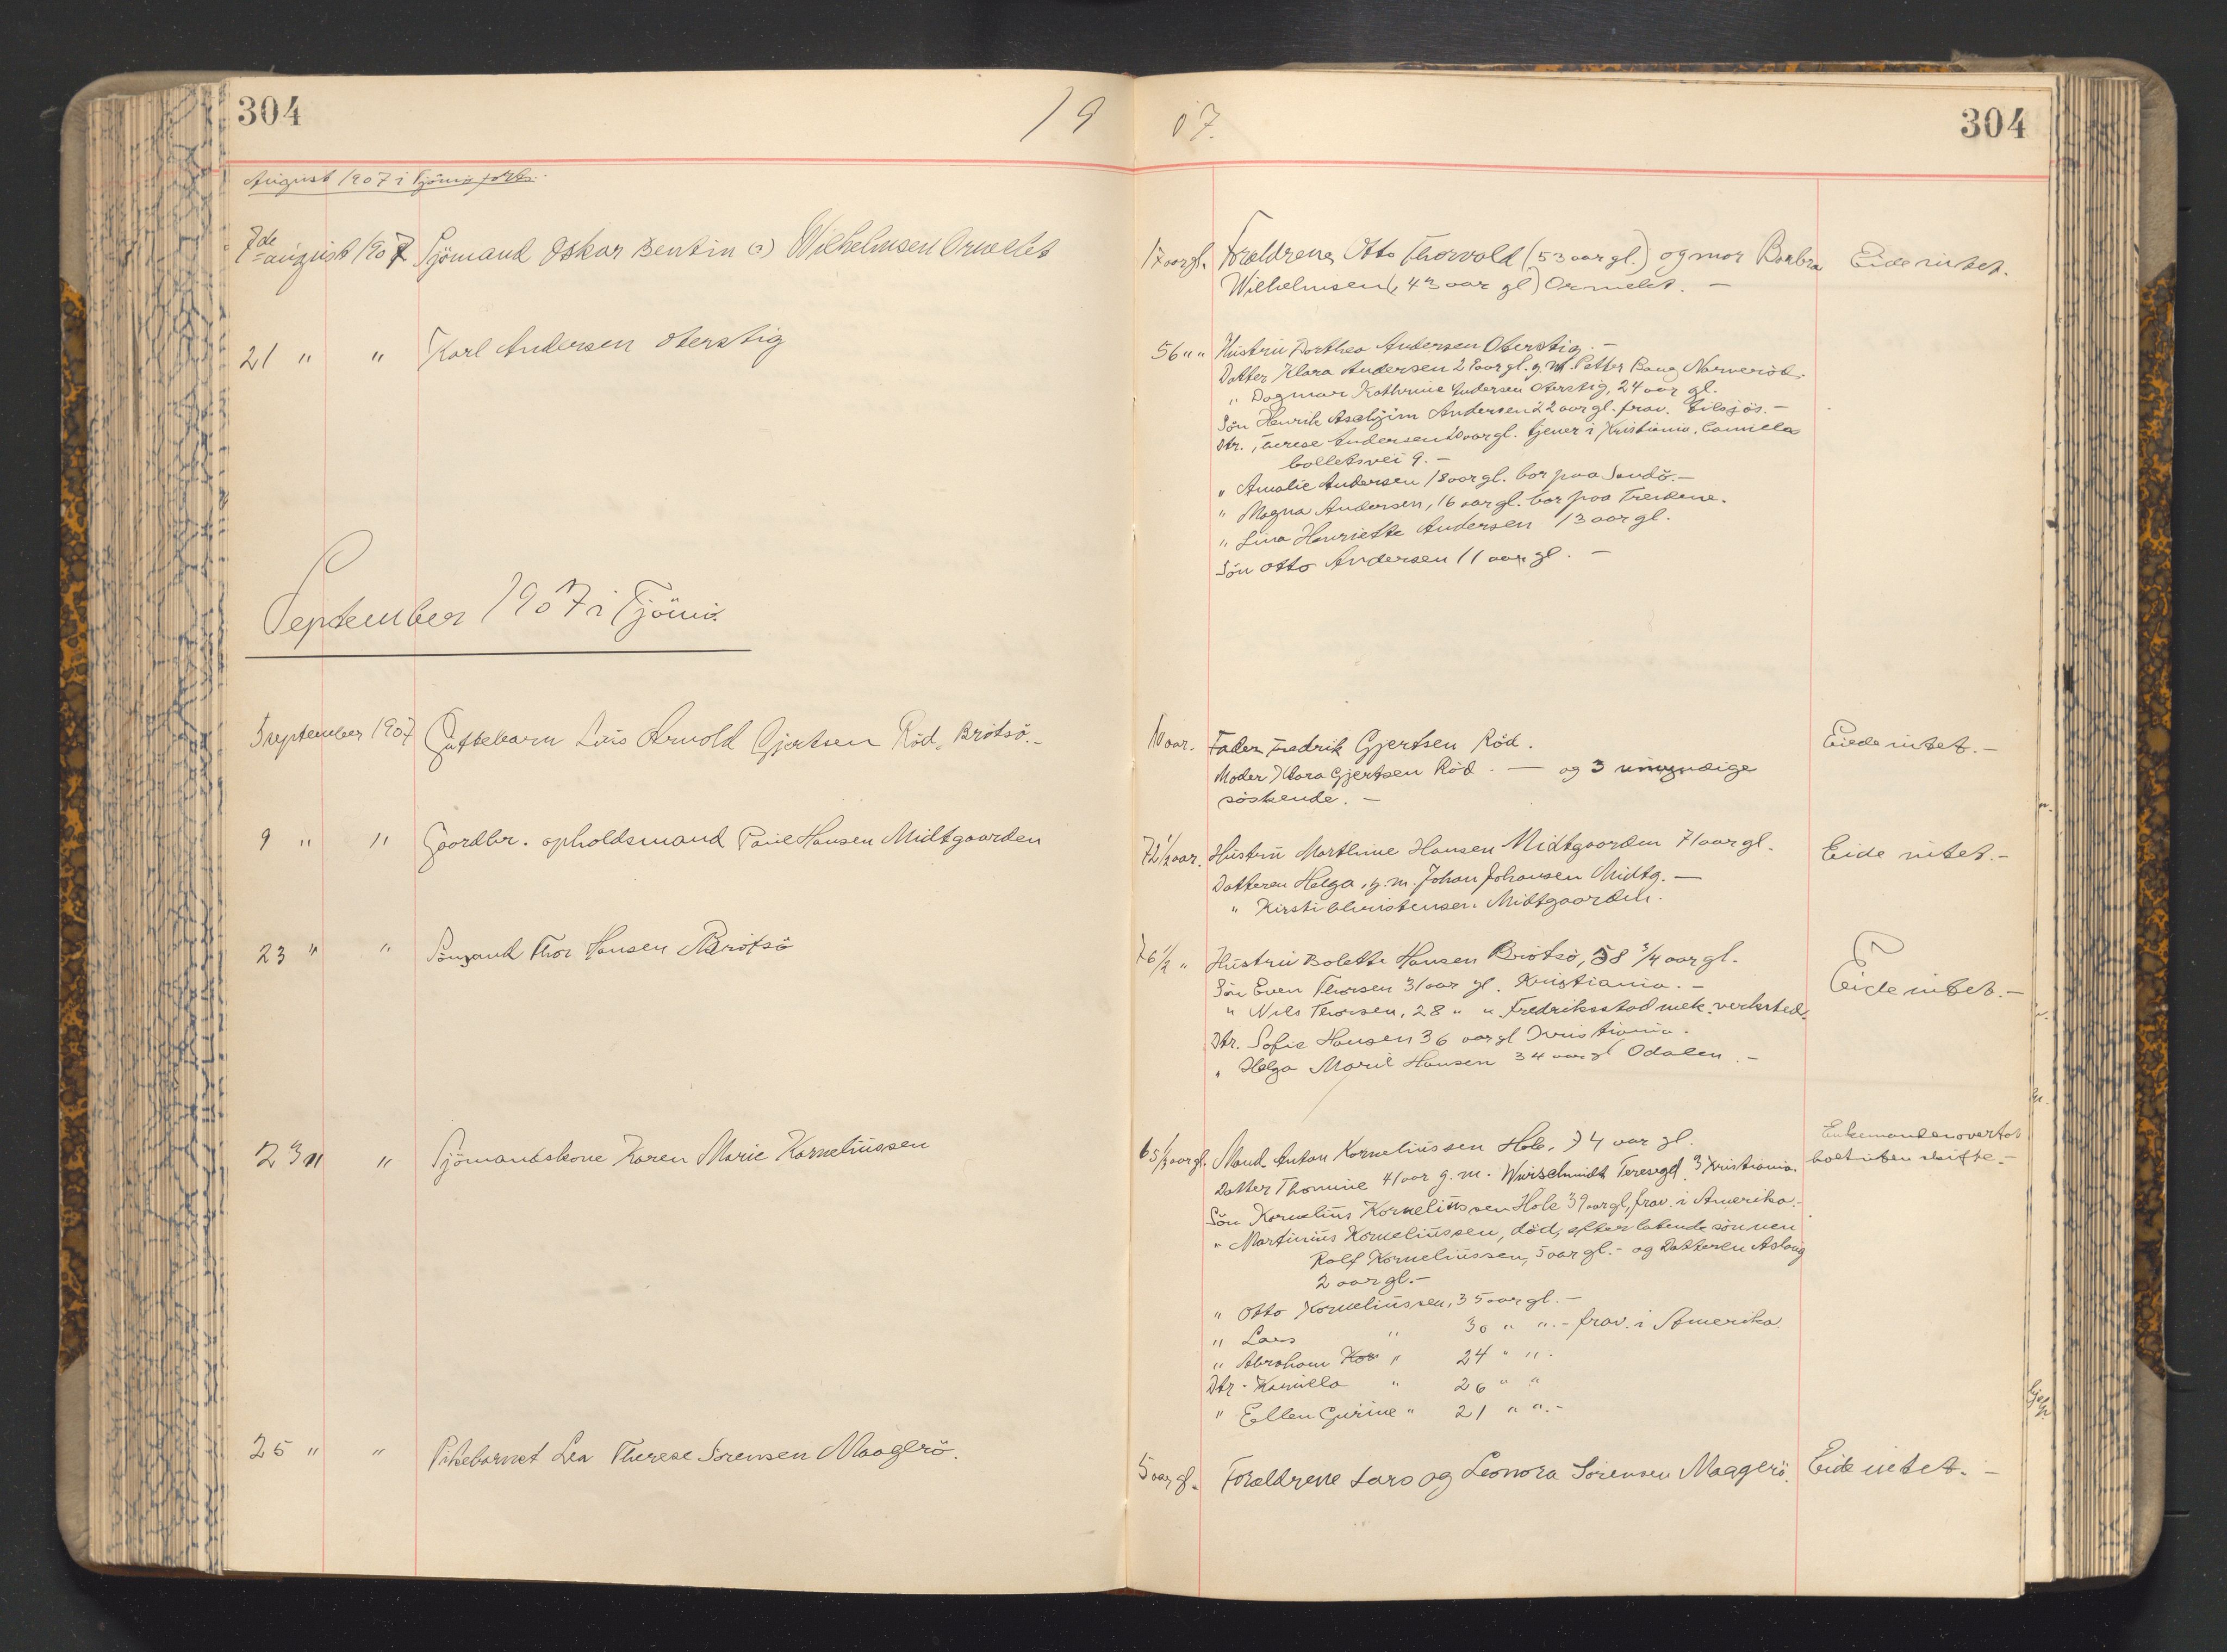 304
19 07.
304
August 1907 i Tjömö forts.
7de august 1907 Sjömand Oskar Bentin (?) Wilhelmsen Ormelet
17 aar gl. Forældrene Otto Thorvald (53 aar gl.) og mor Barbra
Wilhelmsen (43 aar gl) Ormelet. —
Eide intet.
21 " " Karl Andersen Oterstig
56 " " Hustru Dorthea Andersen Oterstig. —
Datter Klara Andersen 28 aar gl. g. m. Petter Bang Narveröd.
" Dagmar Kathrine Andersen Oterstig, 24 aar gl.
Sön Henrik Andersen 22 aar gl. frav. tilsjös. —
Dtr. Terese Andersen 20 aar gl. tjener i Kristiania, Camilla
Colletsvei 9. —
" Amalie Andersen 18 aar gl. bor paa Sandö. —
" Magna Andersen, 16 aar gl. bor paa
" Lina Henriette Andersen 13 aar gl.
Sön Otto Andersen 11 aar gl. —
September 1907 i Tjömö.
3 september 1907 Guttebarn Lars Arnold Gjertsen Röd, Brötsö. —
10 aar. Fader Fredrik Gjertsen Röd.
Moder Klara Gjertsen Röd. — og 3 umyndige
söskende. —
Eiede intet. —
9 " " Gaardbr. opholdsmand Paul Hansen Midtgaarden
72 1/2 aar. Hustru Marthine Hansen Midtgaarden 71 aar gl.
Datteren Helga, g. m. Johan Johansen Midtg. —
" Kirsti Christensen Midtgaarden.
Eide intet. —
23 " " Sömand Thor Hansen Brötsö
76 1/2 " Hustru Bolette Hansen Brötsö, 58 3/4 aar gl.
Sön Even Thorsen 31 aar gl. Kristiania. —
" Nils Thorsen, 28 " " Fredriksstad mek. verksted.
Dtr. Sofie Hansen 36 aar gl Kristiania.
" Helga Marie Hansen 34 aar gl Odalen. —
Eide intet. —
23 " " Sjömandskone Karen Marie Korneliussen
65 1/2 aar gl. Mand Anton Korneliussen Hole, 74 aar gl.
Datter Thomine 41 aar g. m. Wirschmidt Teresegd. 3 Kristiania.
Sön Kornelius Korneliussen Hole 39 aar gl, frav. i Amerika. —
" Martinius Korneliussen, död, efterlatende sönnen
Rolf Korneliussen, 5 aar gl. — og Datteren Aslaug
2 aar gl. —
" Otto Korneliussen, 35 aar gl. —
" Lars " 30 " ". — frav. i Amerika.
" Abraham Kor " 24 " ".
Dtr. Kamilla " 26 " "
" Ellen Gurine " 21 " ". —
Enkemanden overtok
boet uten skifte. —
25 " " Pikebarnet Lea Therese Sörensen Maagerö.
5 aar gl. Forældrene Lars og Leonora Sörensen Maagerö.
Eide intet. —